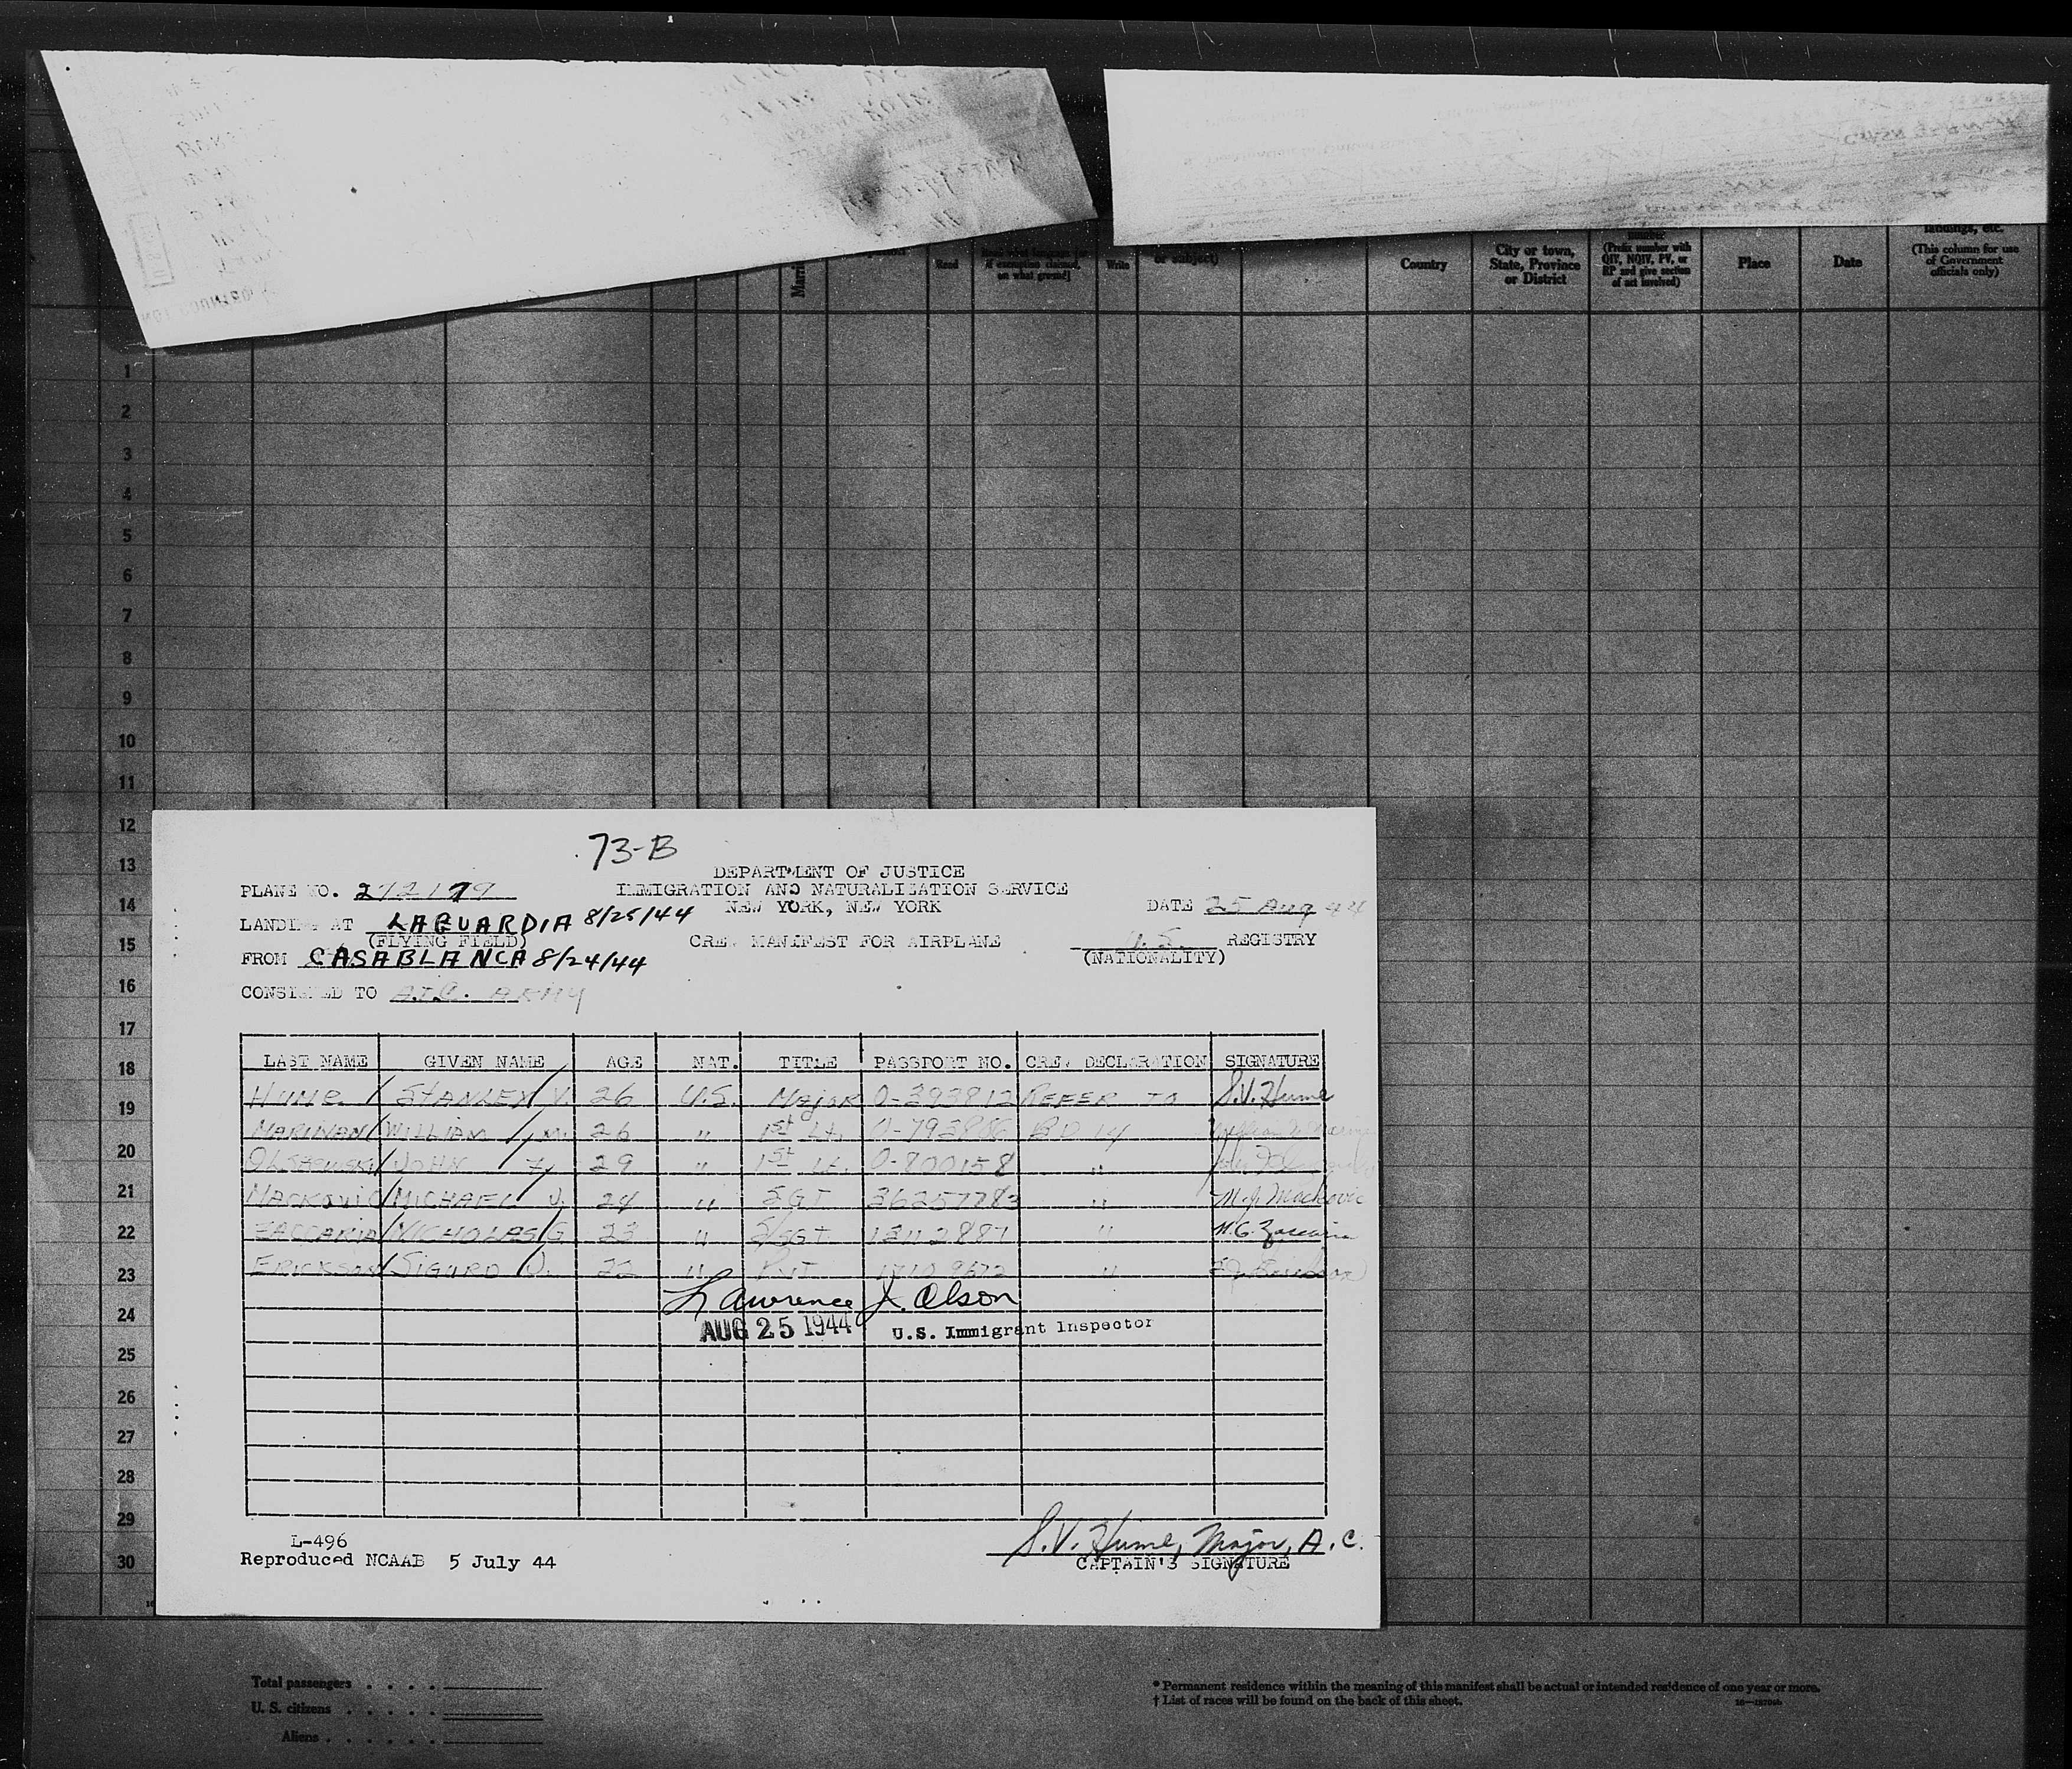 Read
Write
or subject)
Country
City or town,
State, Province
or District
number
(Prefix number with
QIV, NQIV, PV, or
RP and give section
of act involved)
Place
Date
landings, etc.
(This column for use
of Government
officials only)
1
2
3
4
5
6
7
8
9
10
11
12
13
14
15
16
17
18
19
20
21
22
23
24
25
26
27
28
29
30
73-B
DEPARTMENT OF JUSTICE
PLANE NO. 272179 IMMIGRATION AND NATURALIZATION SERVICE
NEW YORK, NEW YORK DATE 25 Aug 44
LANDING AT LAGUARDIA 8/25/44
(FLYING FIELD) CREW MANIFEST FOR AIRPLANE U.S. REGISTRY
FROM CASABLANCA 8/24/44 (NATIONALITY)
CONSIGNED TO A.T.C. ARMY
LAST NAME GIVEN NAME AGE NAT. TITLE PASSPORT NO. CREW DECLARATION SIGNATURE
Hume STANLEY V. 26 U.S. Major O-393812 REFER TO S.V. Hume
WILLIAM M. 26 " 1st Lt. BD 14
JOHN F. 29 " 1st Lt. O-800158 "
MACKOVIC MICHAEL J. 24 " SGT " M.J. Mackovic
ZACCARIA NICHOLAS G. 23 " S/SGT 12112887 " N.G. Zaccaria
ERICKSON SIGURD J. 22 " PVT "
Lawrence J. Olson
AUG 25 1944 U.S. Immigrant Inspector
L-496
Reproduced NCAAB 5 July 44
S.V. Hume, Major, A.C.
CAPTAIN'S SIGNATURE
Total passengers . . . .
U. S. citizens . . . . .
Aliens . . . . . .
* Permanent residence within the meaning of this manifest shall be actual or intended residence of one year or more.
† List of races will be found on the back of this sheet.